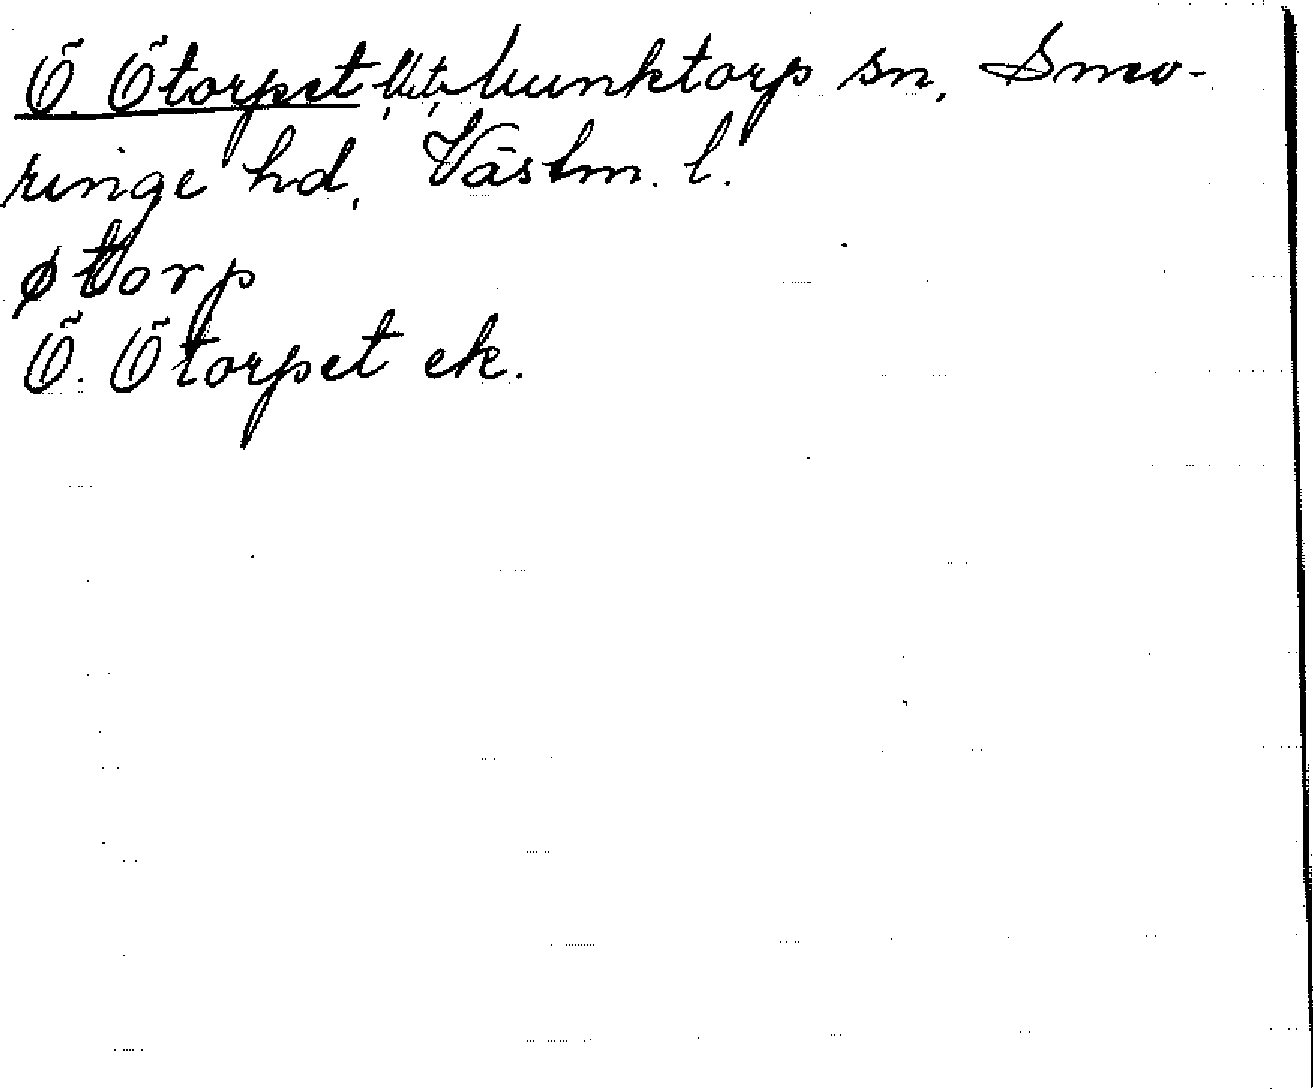 Ö. Ötorpet, Munktorp sn, Snev-
ringe hd, Västm. l.
ø torp
Ö. Ötorpet ek.